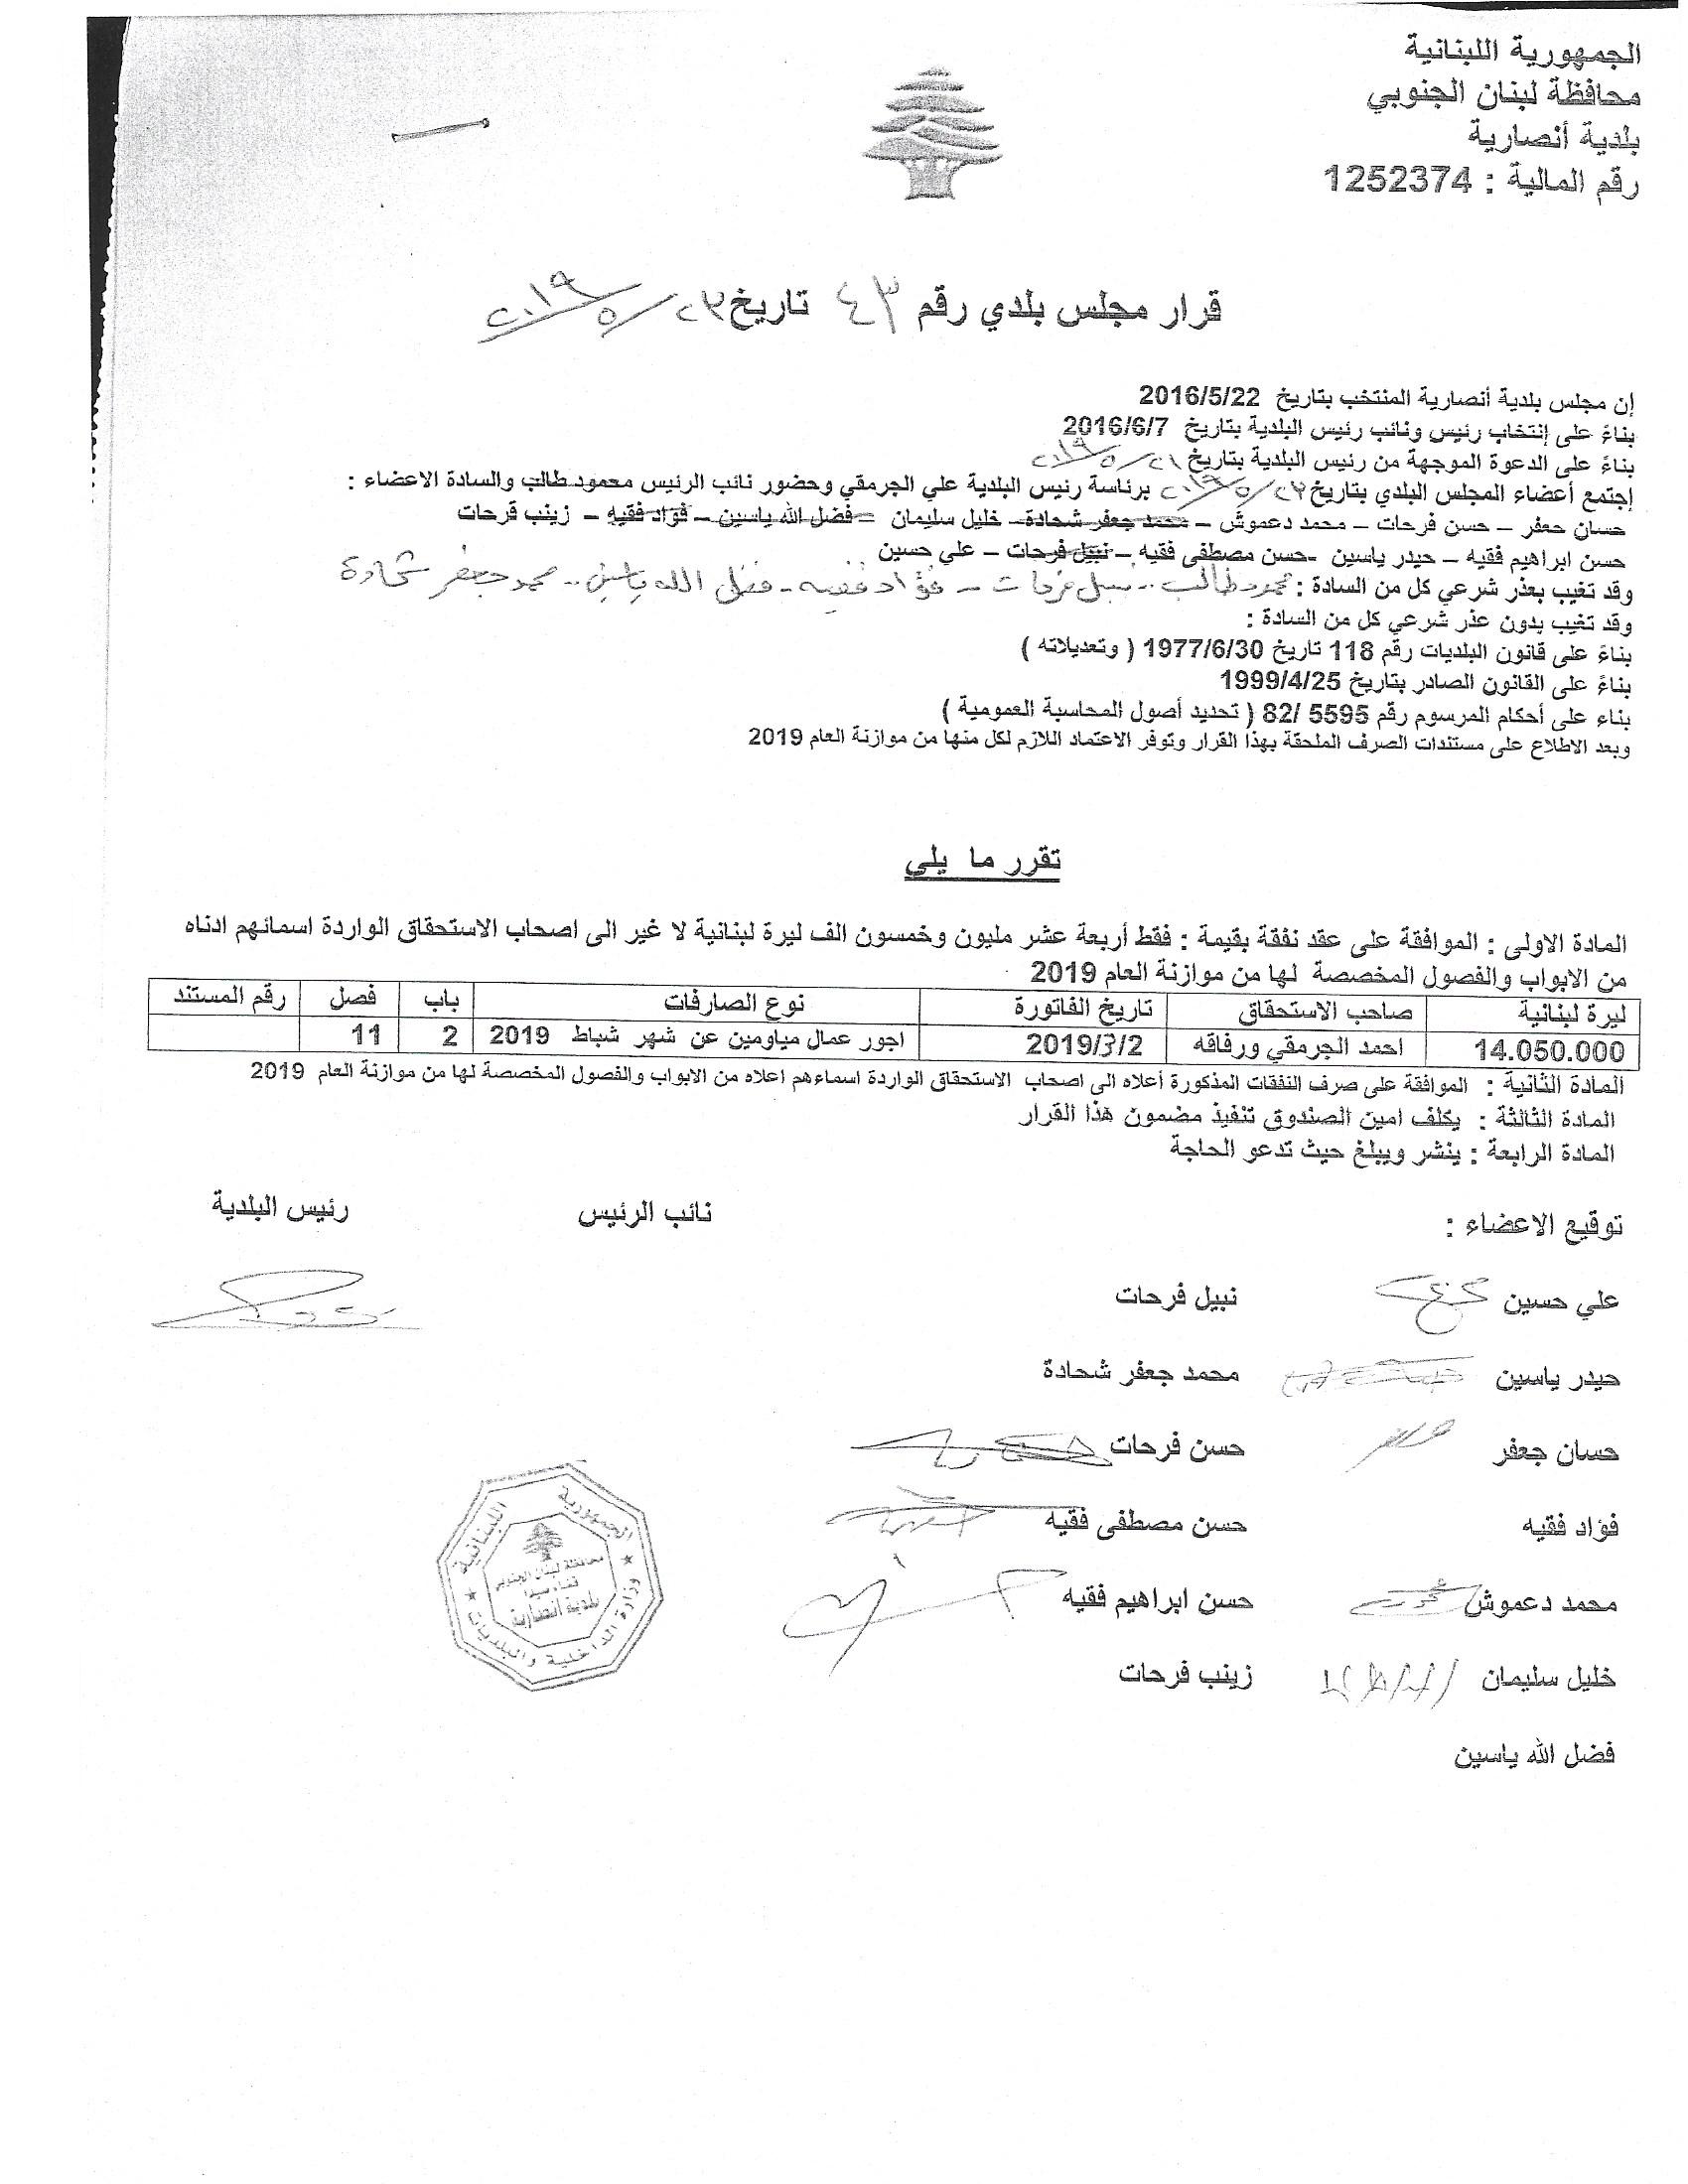 الجمهورية اللبنانية
محافظة لبنان الجنوبي
بلدية أنصارية
رقم المالية : 1252374
قرار مجلس بلدي رقم ٤٣ تاريخ ٢٣/٥/٢٠١٩
إن مجلس بلدية أنصارية المنتخب بتاريخ 2016/5/22
بناءً على إنتخاب رئيس ونائب رئيس البلدية بتاريخ 2016/6/7
بناءً على الدعوة الموجهة من رئيس البلدية بتاريخ ٢١/٥/٢٠١٩
إجتمع أعضاء المجلس البلدي بتاريخ ٢٣/٥/٢٠١٩ برئاسة رئيس البلدية علي الجرمقي وحضور نائب الرئيس محمود طالب والسادة الاعضاء :
حسان جعفر – حسن فرحات – محمد دعموش – محمد جعفر شحادة – خليل سليمان – فضل الله ياسين – فؤاد فقيه – زينب فرحات
حسن ابراهيم فقيه – حيدر ياسين - حسن مصطفى فقيه – نبيل فرحات – علي حسين
وقد تغيب بعذر شرعي كل من السادة : محمود طالب - نبيل فرحات - فؤاد فقيه - فضل الله ياسين - محمد جعفر شحادة
وقد تغيب بدون عذر شرعي كل من السادة :
بناءً على قانون البلديات رقم 118 تاريخ 1977/6/30 ( وتعديلاته )
بناءً على القانون الصادر بتاريخ 1999/4/25
بناء على أحكام المرسوم رقم 5595 /82 ( تحديد أصول المحاسبة العمومية )
وبعد الاطلاع على مستندات الصرف الملحقة بهذا القرار وتوفر الاعتماد اللازم لكل منها من موازنة العام 2019
تقرر ما يلي
المادة الاولى : الموافقة على عقد نفقة بقيمة : فقط أربعة عشر مليون وخمسون الف ليرة لبنانية لا غير الى اصحاب الاستحقاق الواردة اسمائهم ادناه
من الابواب والفصول المخصصة لها من موازنة العام 2019
ليرة لبنانية صاحب الاستحقاق تاريخ الفاتورة نوع الصارفات باب فصل رقم المستند
14.050.000 احمد الجرمقي ورفاقه 2019/3/2 اجور عمال مياومين عن شهر شباط 2019 2 11
المادة الثانية : الموافقة على صرف النفقات المذكورة أعلاه الى اصحاب الاستحقاق الواردة اسماءهم اعلاه من الابواب والفصول المخصصة لها من موازنة العام 2019
المادة الثالثة : يكلف امين الصندوق تنفيذ مضمون هذا القرار
المادة الرابعة : ينشر ويبلغ حيث تدعو الحاجة
توقيع الاعضاء : نائب الرئيس رئيس البلدية
علي حسين نبيل فرحات
حيدر ياسين محمد جعفر شحادة
حسان جعفر حسن فرحات
فؤاد فقيه حسن مصطفى فقيه
محمد دعموش حسن ابراهيم فقيه
خليل سليمان زينب فرحات
فضل الله ياسين
الجمهورية اللبنانية
وزارة الداخلية والبلديات
محافظة لبنان الجنوبي
قضاء صيدا
بلدية أنصارية